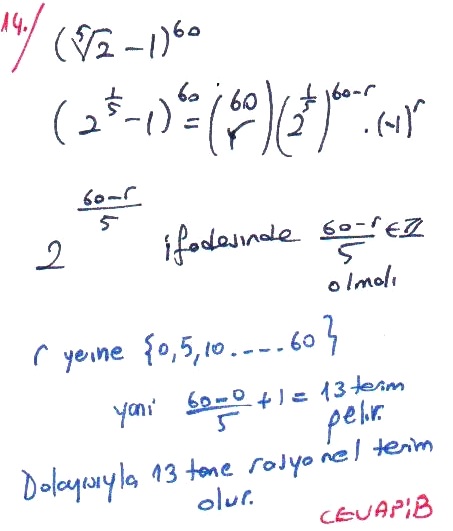 14./ (⁵√2 - 1)^60
(2^(1/5) - 1)^60 = (60 r) (2^(1/5))^(60-r) . (-1)^r
2^((60-r)/5) ifadesinde (60-r)/5 ∈ Z
olmalı
r yerine {0, 5, 10 ..... 60}
yani (60-0)/5 + 1 = 13 terim
gelir.
Dolayısıyla 13 tane rasyonel terim
olur.
CEVAP: B